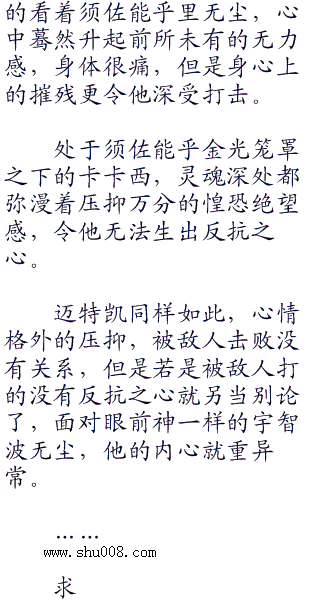 的看着须佐能乎里无尘，心
中蓦然升起前所未有的无力
感，身体很痛，但是身心上
的摧残更令他深受打击。
处于须佐能乎金光笼罩
之下的卡卡西，灵魂深处都
弥漫着压抑万分的惶恐绝望
感，令他无法生出反抗之
心。
迈特凯同样如此，心情
格外的压抑，被敌人击败没
有关系，但是若是被敌人打
的没有反抗之心就另当别论
了，面对眼前神一样的宇智
波无尘，他的内心就重异
常。
……
www.shu008.com
求